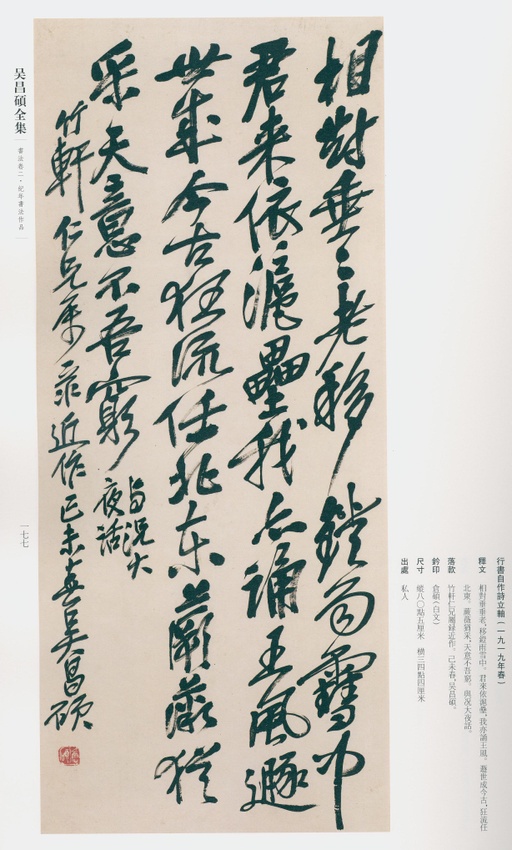 相對垂垂老移鐙雨雪中
君来依滬壘我亦誦王風遯
世成今古狂流任北東蕨薇猶
采天意不吾窮
與況大
夜話
竹軒仁兄屬録近作己未春吴昌碩
行書自作詩立軸（一九一九年春）
釋文 相對垂垂老，移鐙雨雪中。君来依滬壘，我亦誦王風。遯世成今古，狂流任
北東。蕨薇猶采，天意不吾窮。與況大夜話。
落款 竹軒仁兄屬録近作。己未春，吴昌碩。
鈐印 倉碩（白文）
尺寸 縱八〇點五厘米 橫三四點四厘米
出處 私人
吴昌碩全集
書法卷二·紀年書法作品
一七七